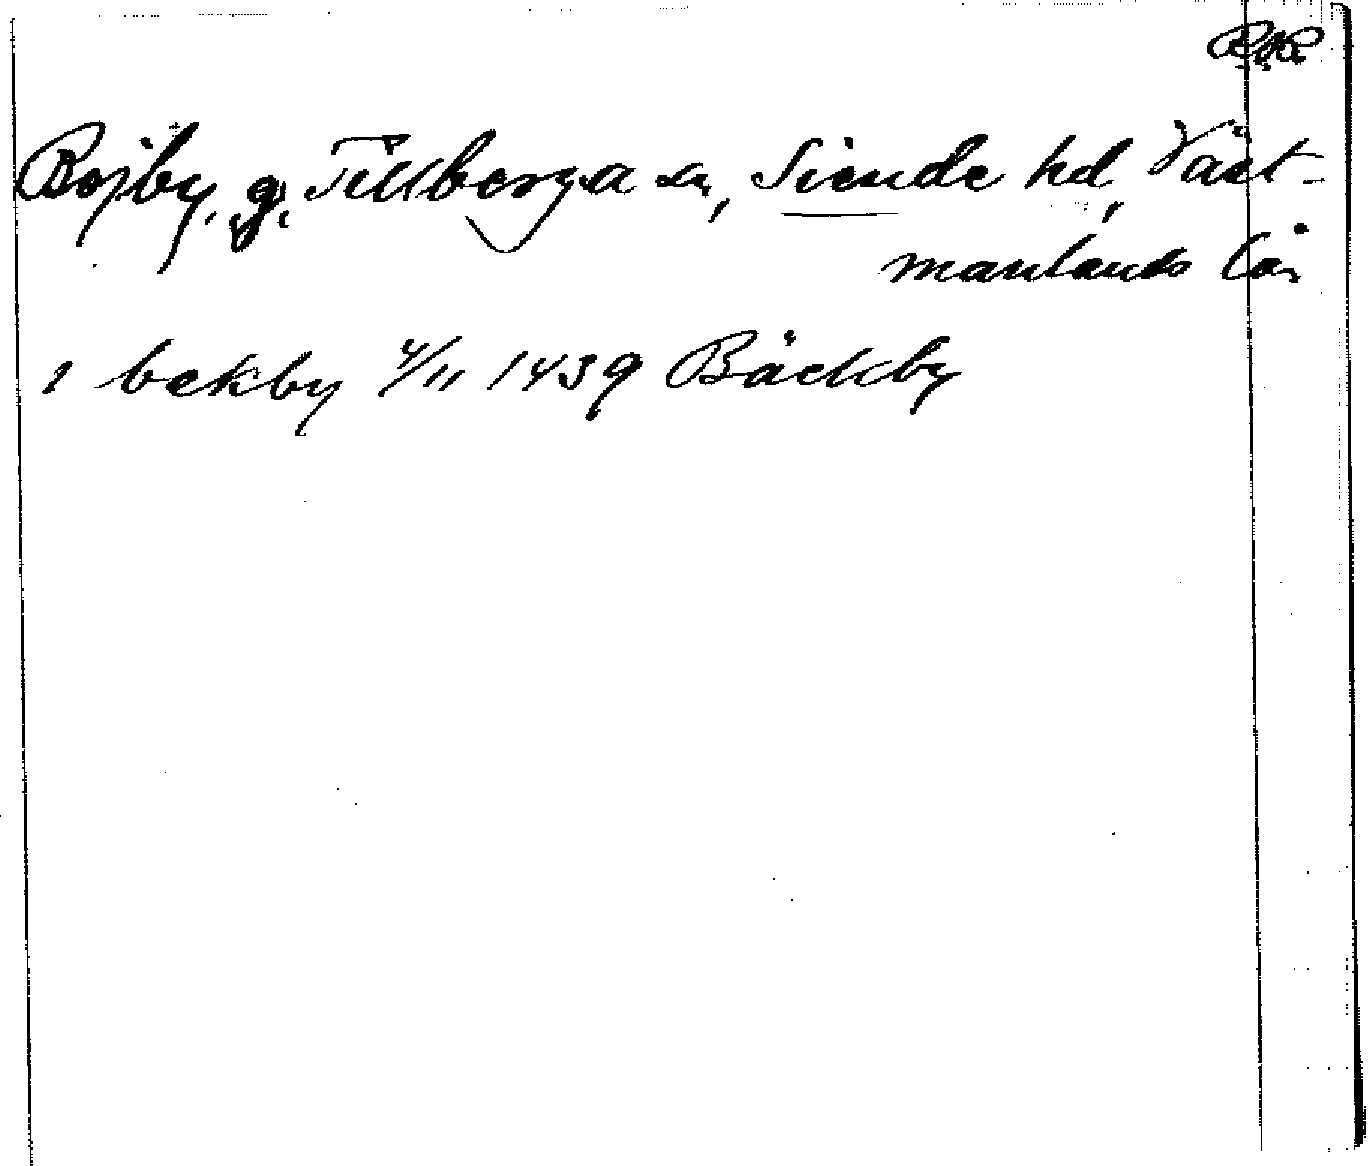 Bojby, g. Tillberga sn, Siende hd, Väst-
manlands län
i bekby 4/11 1439 Bäckby